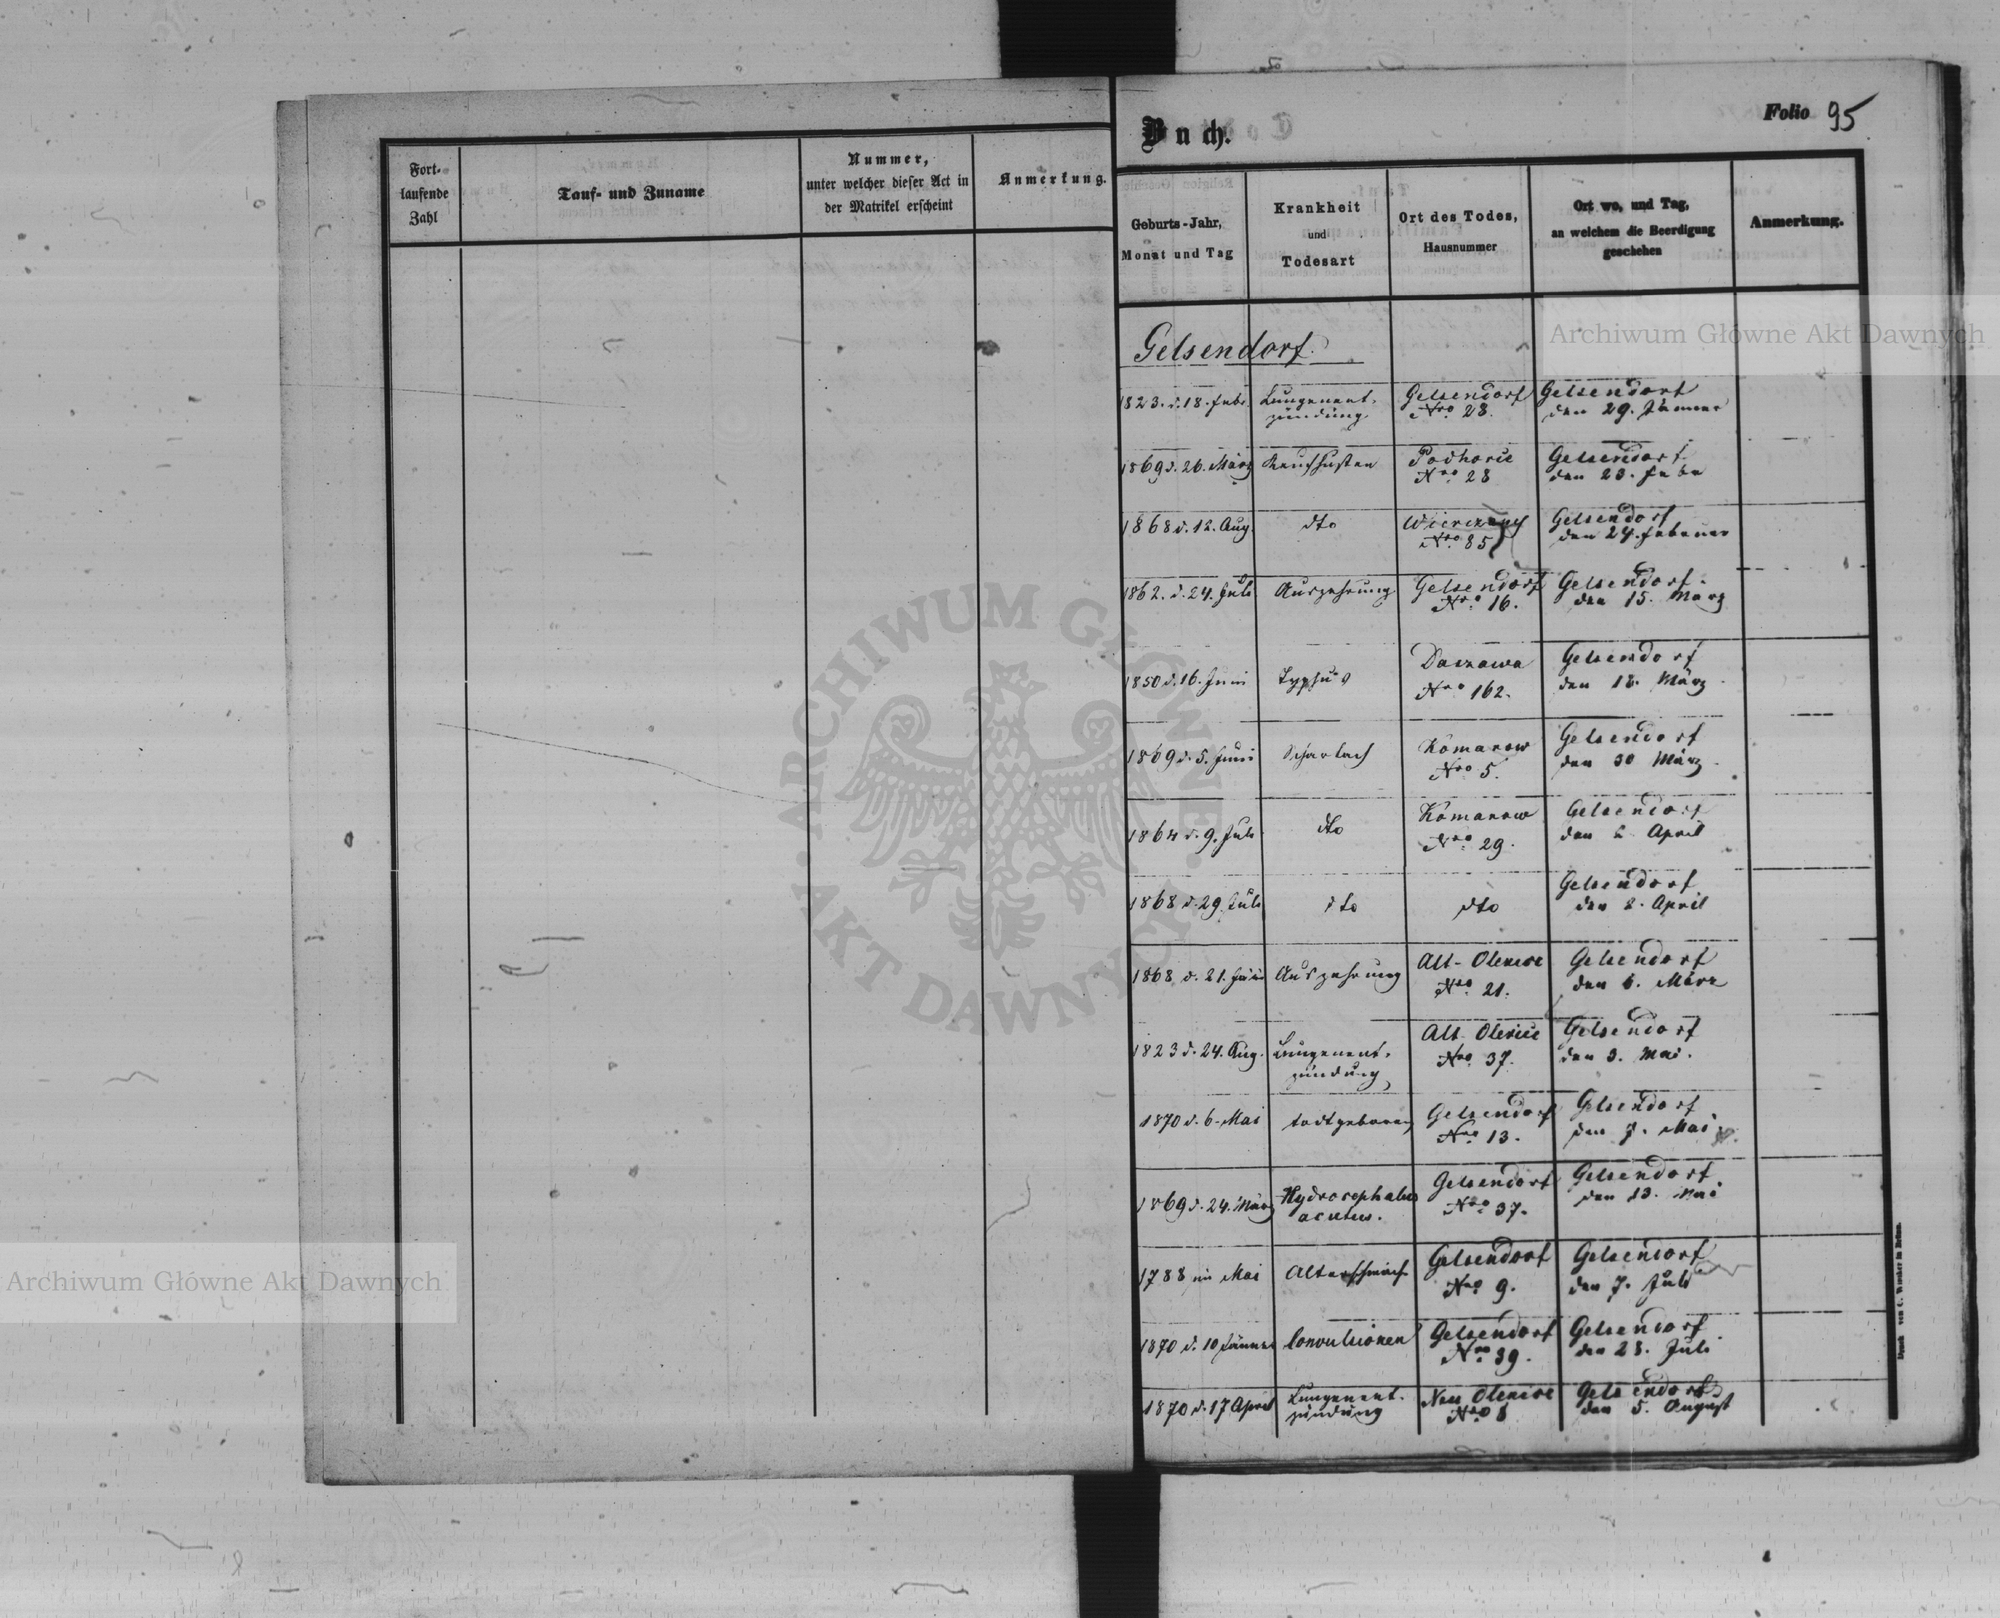 Fort-
laufende
Zahl
Tauf- und Zuname
Nummer,
unter welcher dieser Act in
der Matrikel erscheint
Anmerkung.
Buch.
Folio 95
Geburts-Jahr,
Monat und Tag
Krankheit
und
Todesart
Ort des Todes,
Hausnummer
Ort wo, und Tag,
an welchem die Beerdigung
geschehen
Anmerkung.
Gelsendorf.
1823. d. 18. Febr.
Lungenent-
zündung
Gelsendorf
Nro 28.
Gelsendorf
den 29. Jänner
1869 d. 26. März
Keuchhusten
Podhorce
Nro 28
Gelsendorf
den 23. Febr
1868 d. 12. Aug.
dto
Wierczany
Nro 85
Gelsendorf
den 24. Februar
1862. d. 24. Juli
Auszehrung
Gelsendorf
Nro 16.
Gelsendorf.
den 15. März
1850 d. 16. Juni
Typhus
Daszawa
Nro 162.
Gelsendorf
den 18. März
1869 d. 5. Juni
Scharlach
Komarow
Nro 5.
Gelsendorf
den 30 März
1864 d. 9. Juli
dto
Komarow
Nro 29.
Gelsendorf
den April
1868 d. 29. Juli
dto
dto
Gelsendorf
den 2. April
1868 d. 21. Juni
Auszehrung
Alt-Olexice
Nro 21.
Gelsendorf
den 6. März
1823 d. 24. Aug.
Lungenent-
zündung
Alt Olexice
Nro 37.
Gelsendorf
den 3. Mai.
1870 d. 6. Mai
todtgeboren
Gelsendorf
Nro 13.
Gelsendorf
den 7. Mai
1869 d. 24. März
Hydrocephalus
acutus.
Gelsendorf
Nro 37.
Gelsendorf
den 13. Mai
1788 im Mai
Altersschwäch
Gelsendorf
Nro 9.
Gelsendorf
den 7. Juli
1870 d. 10 Jänner
Convulsionen
Gelsendorf
Nro 39.
Gelsendorf
den 28. Juli
1870 d. 17 April
Lungenent-
zündung
Neu Olexice
Nro
Gelsendorf
den 5. August
Archiwum Główne Akt Dawnych
Archiwum Główne Akt Dawnych
ARCHIWUM GŁÓWNE
AKT DAWNYCH